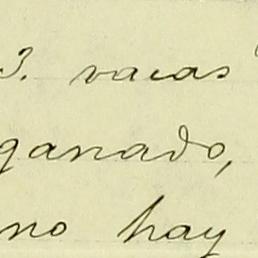 3. vacas
ganado,
no hay